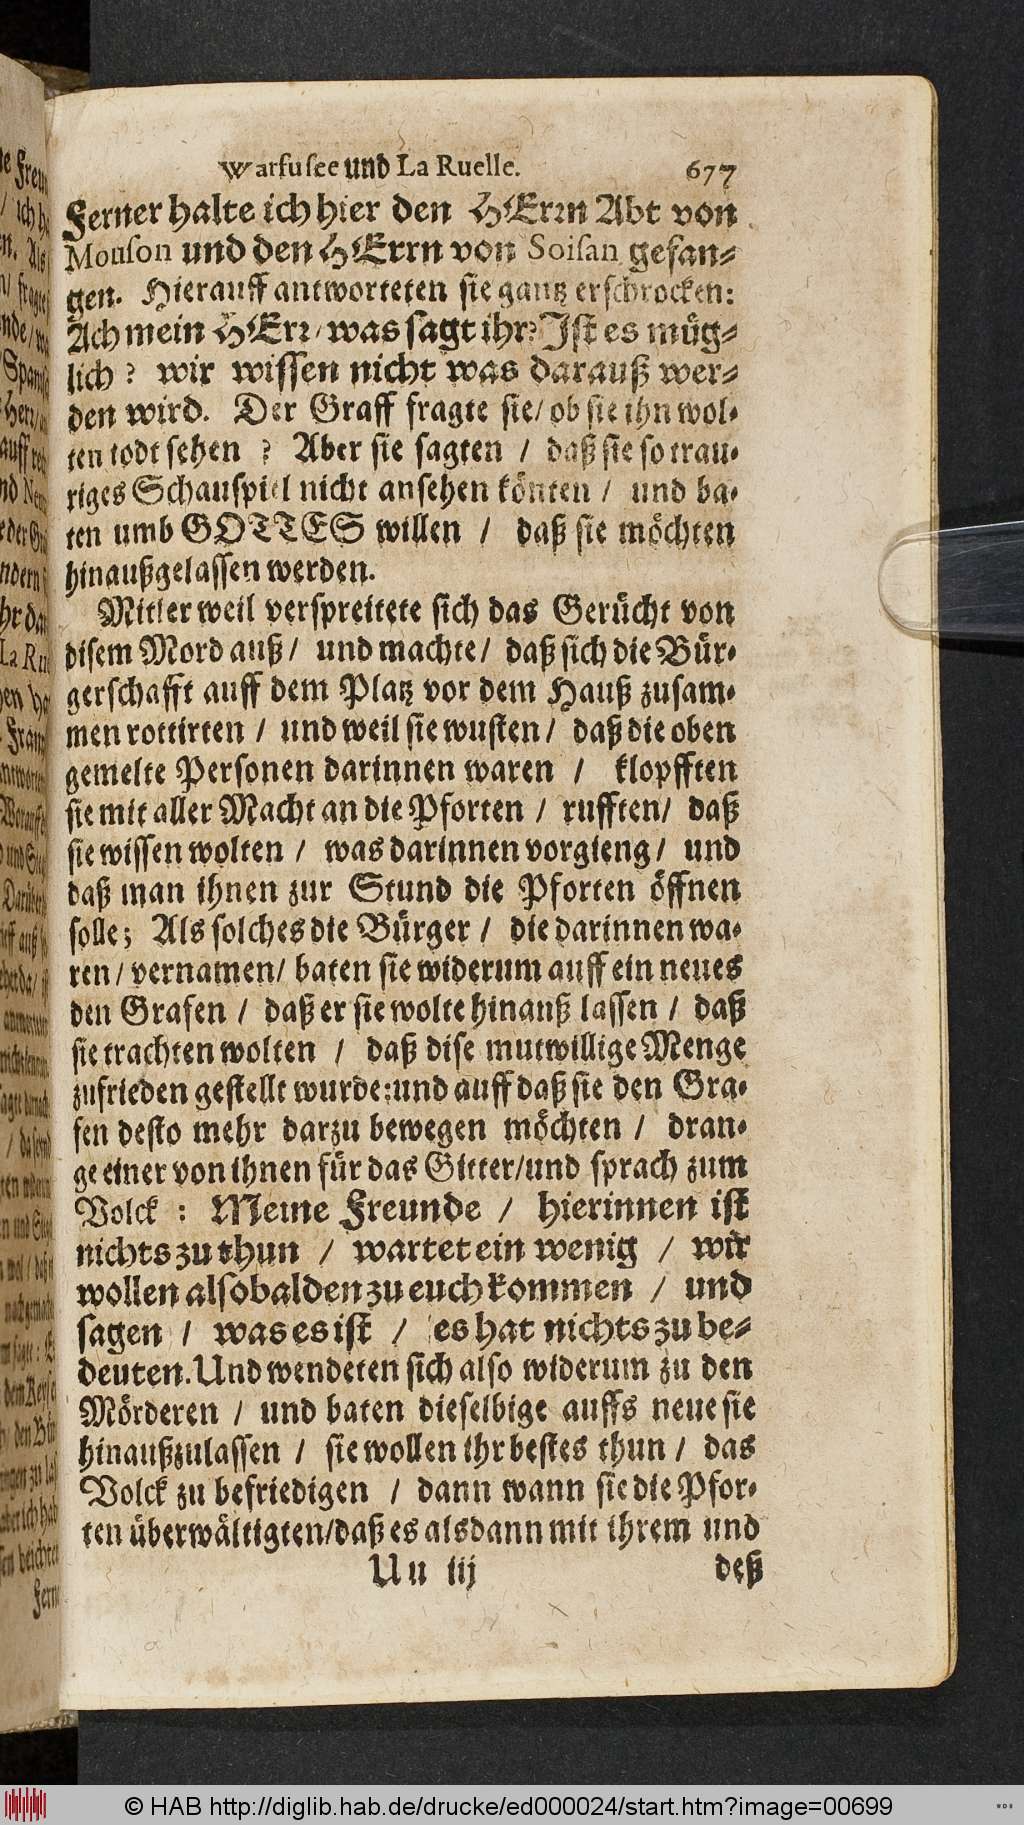 Warfusee und La Ruelle. 677
Ferner halte ich hier den HErrn Abt von
Mouson und den HErrn von Soisan gefan-
gen. Hierauff antworteten sie gantz erschrocken:
Ach mein HErr/ was sagt ihr? Ist es müg-
lich? wir wissen nicht was darauß wer-
den wird. Der Graff fragte sie/ ob sie ihn wol-
ten todt sehen? Aber sie sagten / daß sie so trau-
riges Schauspiel nicht ansehen könten / und ba-
ten umb GOTTES willen / daß sie möchten
hinaußgelassen werden.
Mitler weil verspreitete sich das Gerücht von
disem Mord auß/ und machte/ daß sich die Bür-
gerschafft auff dem Platz vor dem Hauß zusam-
men rottirten / und weil sie wusten/ daß die oben
gemelte Personen darinnen waren / klopfften
sie mit aller Macht an die Pforten / rufften/ daß
sie wissen wolten / was darinnen vorgieng/ und
daß man ihnen zur Stund die Pforten öffnen
solle; Als solches die Bürger / die darinnen wa-
ren/ vernamen/ baten sie widerum auff ein neues
den Grafen / daß er sie wolte hinauß lassen / daß
sie trachten wolten / daß dise mutwillige Menge
zufrieden gestellt wurde: und auff daß sie den Gra-
fen desto mehr darzu bewegen möchten / dran-
ge einer von ihnen für das Gitter/ und sprach zum
Volck: Meine Freunde / hierinnen ist
nichts zu thun / wartet ein wenig / wir
wollen alsobalden zu euch kommen / und
sagen / was es ist / es hat nichts zu be-
deuten. Und wendeten sich also widerum zu den
Mörderen / und baten dieselbige auffs neue sie
hinaußzulassen / sie wollen ihr bestes thun / das
Volck zu befriedigen / dann wann sie die Pfor-
ten überwältigten/ daß es alsdann mit ihrem und
Uu iij deß
© HAB http://diglib.hab.de/drucke/ed000024/start.htm?image=00699